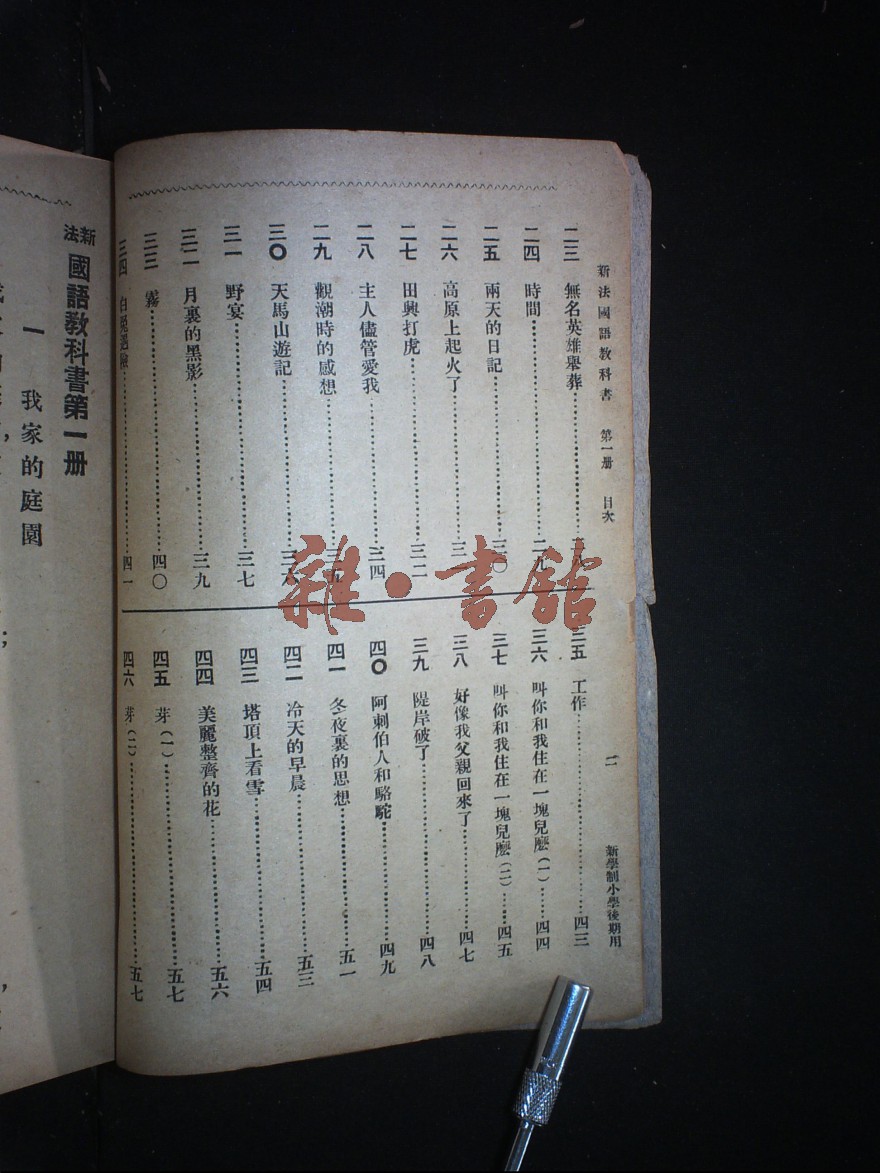 新法國語教科書 第一册 目次
二三 無名英雄舉葬
二四 時間 二九
二五 兩天的日記 三〇
二六 高原上起火了
二七 田興打虎 三二
二八 主人儘管愛我 三四
二九 觀潮時的感想 三五
三〇 天馬山遊記 三六
三一 野宴 三七
三二 月裏的黑影 三九
三三 霧 四〇
三四 白兎遇險 四一
三五 工作 四三
三六 叫你和我住在一塊兒麽(一) 四四
三七 叫你和我住在一塊兒麽(二) 四五
三八 好像我父親回來了 四七
三九 隄岸破了 四八
四〇 阿剌伯人和駱駝 四九
四一 冬夜裏的思想 五一
四二 冷天的早晨 五三
四三 塔頂上看雪 五四
四四 美麗整齊的花 五六
四五 芽(一) 五七
四六 芽(二) 五七
二
新學制小學後期用
新法 國語教科書第一册
一 我家的庭園
雜·書館